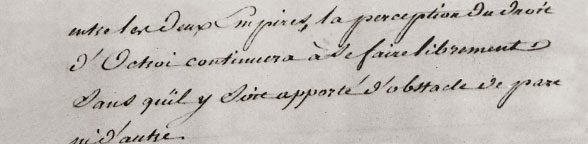 entre les deux Empires, la perception du droit
d'Octroi continuera à se faire librement
sans qu'il y soit apporté d'obstacle de part
ni d'autre.